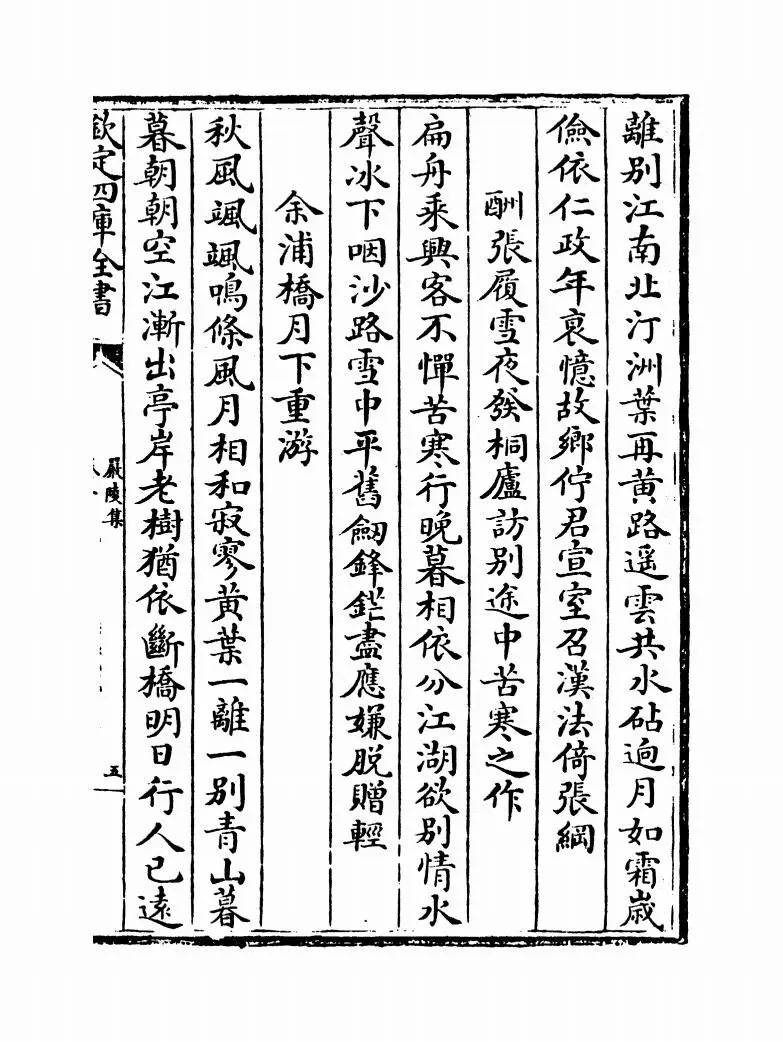 離別江南北汀洲葉再黄路遥雲共水砧逈月如霜歳
儉依仁政年衰憶故鄉佇君宣室召漢法倚張綱
酬張履雪夜發桐廬訪别途中苦寒之作
扁舟乘興客不憚苦寒行晚暮相依分江湖欲别情水
聲冰下咽沙路雪中平舊劔鋒鋩盡應嫌脱贈輕
余浦橋月下重游
秋風颯颯鳴條風月相和寂寥黄葉一離一别青山暮
暮朝朝空江漸出亭岸老樹猶依斷橋明日行人已遠
欽定四庫全書
嚴陵集
五